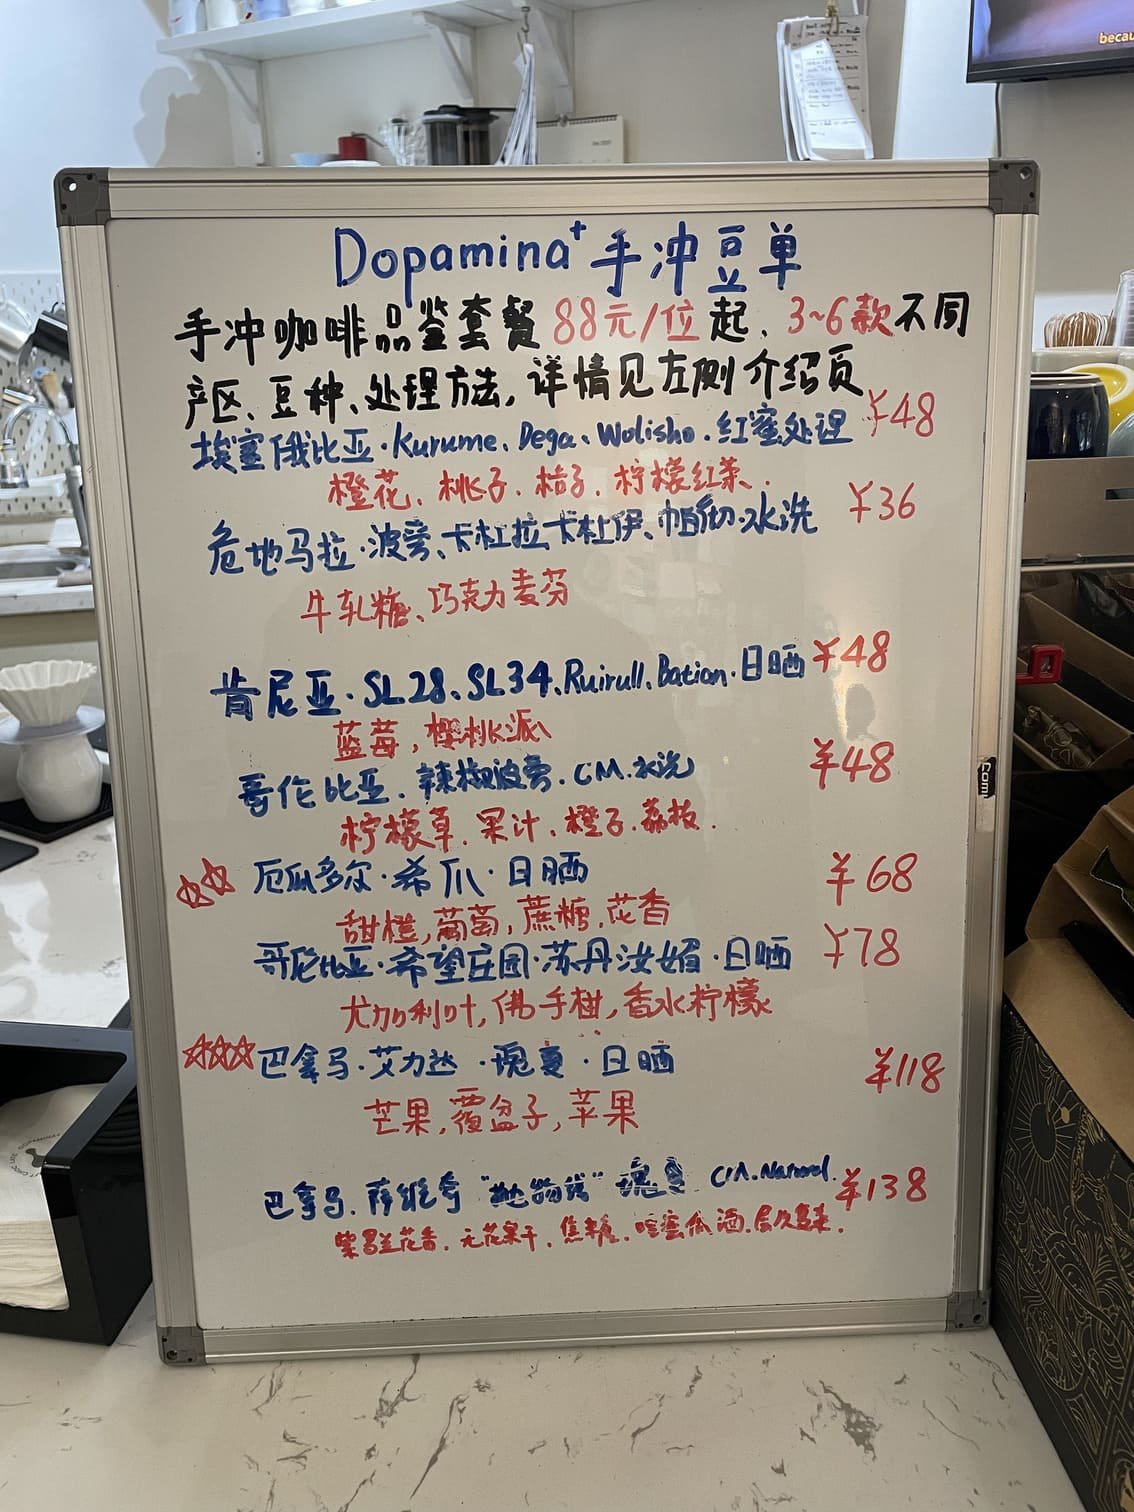 Dopamina⁺手冲豆单
手冲咖啡品鉴套餐88元/位起、3~6款不同
产区、豆种、处理方法,详情见左侧介绍页
埃塞俄比亚·Kurume、Dega、Wolisho·红蜜处理 ¥48
橙花、桃子、桔子、柠檬红茶.
危地马拉·波旁、卡杜拉、卡杜伊、帕彻·水洗 ¥36
牛轧糖、巧克力麦芬
肯尼亚·SL28、SL34、Ruirull、Bation·日晒 ¥48
蓝莓,樱桃派
哥伦比亚.辣椒波旁.CM.水洗 ¥48
柠檬草.果汁.橙子.荔枝.
厄瓜多尔·希爪·日晒 ¥68
甜橙,葡萄,蔗糖,花香
哥伦比亚·希望庄园·苏丹汝媚·日晒 ¥78
尤加利叶,佛手柑,香水柠檬
巴拿马·艾力达·瑰夏·日晒 ¥118
芒果,覆盆子,苹果
巴拿马.薛维奇"抛物线"瑰夏 CM.Natural. ¥138
紫罗兰花香.无花果干.焦糖.蜜瓜酒.
becau